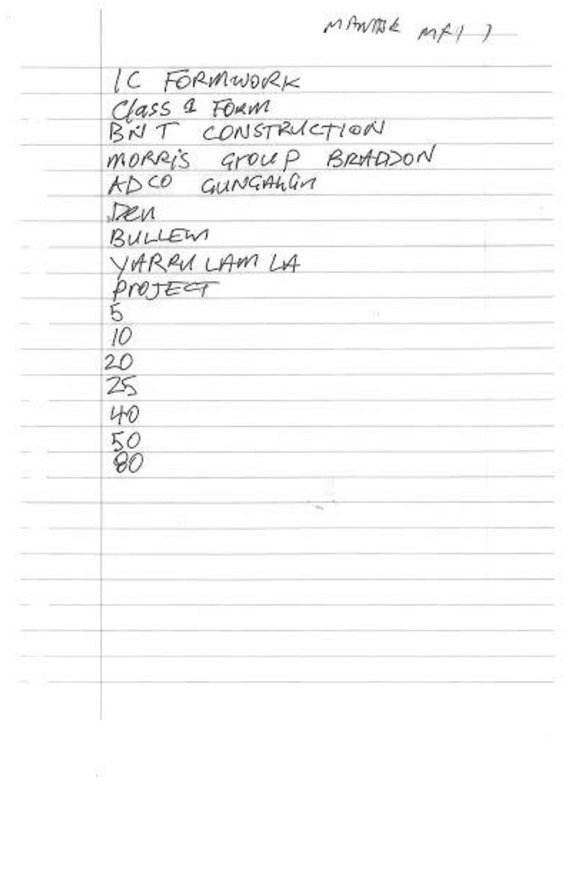 IC FORMWORK
Class 1 FORM
BNT CONSTRUCTION
MORRIS GROUP BRADDON
ADCO
Den
BULLEM
YARRU LAM LA
PROJECT
5
10
20
25
40
50
80